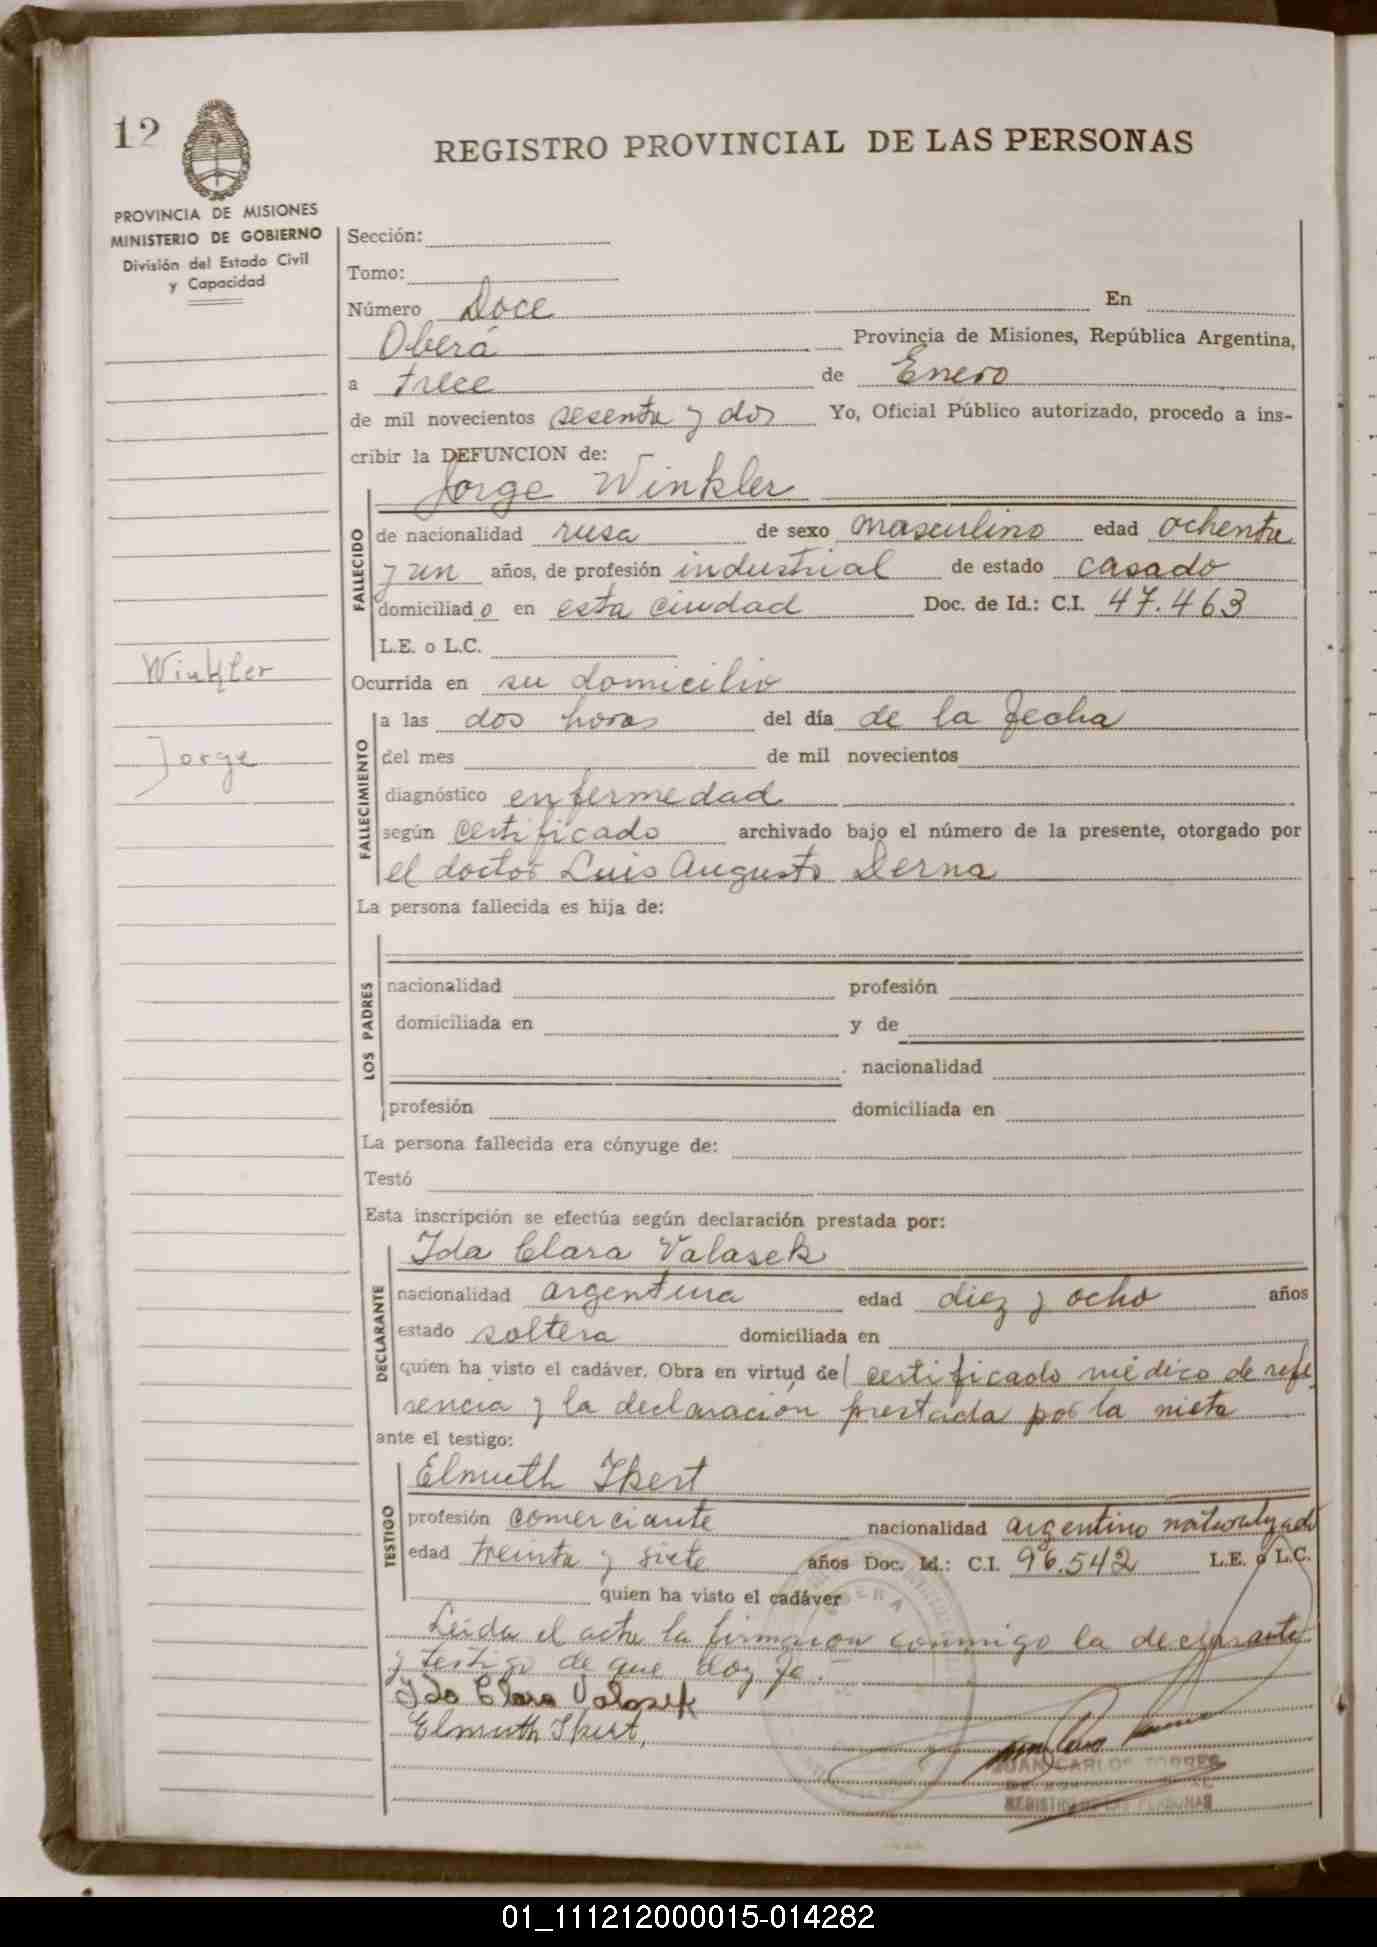 12
REGISTRO PROVINCIAL DE LAS PERSONAS
PROVINCIA DE MISIONES
MINISTERIO DE GOBIERNO
División del Estado Civil
y Capacidad
Sección:
Tomo:
Número Doce En
Oberá Provincia de Misiones, República Argentina,
a trece de Enero
de mil novecientos sesenta y dos Yo, Oficial Público autorizado, procedo a ins-
cribir la DEFUNCION de:
Jorge Winkler
FALLECIDO
de nacionalidad rusa de sexo masculino edad ochenta
y un años, de profesión industrial de estado casado
domiciliado en esta ciudad Doc. de Id.: C.I. 47.463
L.E. o L.C.
Winkler
Jorge
Ocurrida en su domicilio
FALLECIMIENTO
a las dos horas del día de la fecha
del mes de mil novecientos
diagnóstico enfermedad
según certificado archivado bajo el número de la presente, otorgado por
el doctor Luis Augusto Derna
La persona fallecida es hija de:
LOS PADRES
nacionalidad profesión
domiciliada en y de
nacionalidad
profesión domiciliada en
La persona fallecida era cónyuge de:
Testó
Esta inscripción se efectúa según declaración prestada por:
Ida Clara Valasek
DECLARANTE
nacionalidad argentina edad diez y ocho años
estado soltera domiciliada en
quien ha visto el cadáver. Obra en virtud del certificado médico de refe
rencia y la declaración prestada por la nieta
ante el testigo:
Elmuth Ikert
TESTIGO
profesión comerciante nacionalidad argentino naturalizado
edad treinta y siete años Doc. Id.: C.I. 96.542 L.E. o L.C.
quien ha visto el cadáver
Leída el acta la firmaron conmigo la declarante
y testigo de que doy fe.
Ida Clara Valasek
Elmuth Ikert,
JUAN CARLOS TORRES
REGISTRO DE LAS PERSONAS
01_111212000015-014282